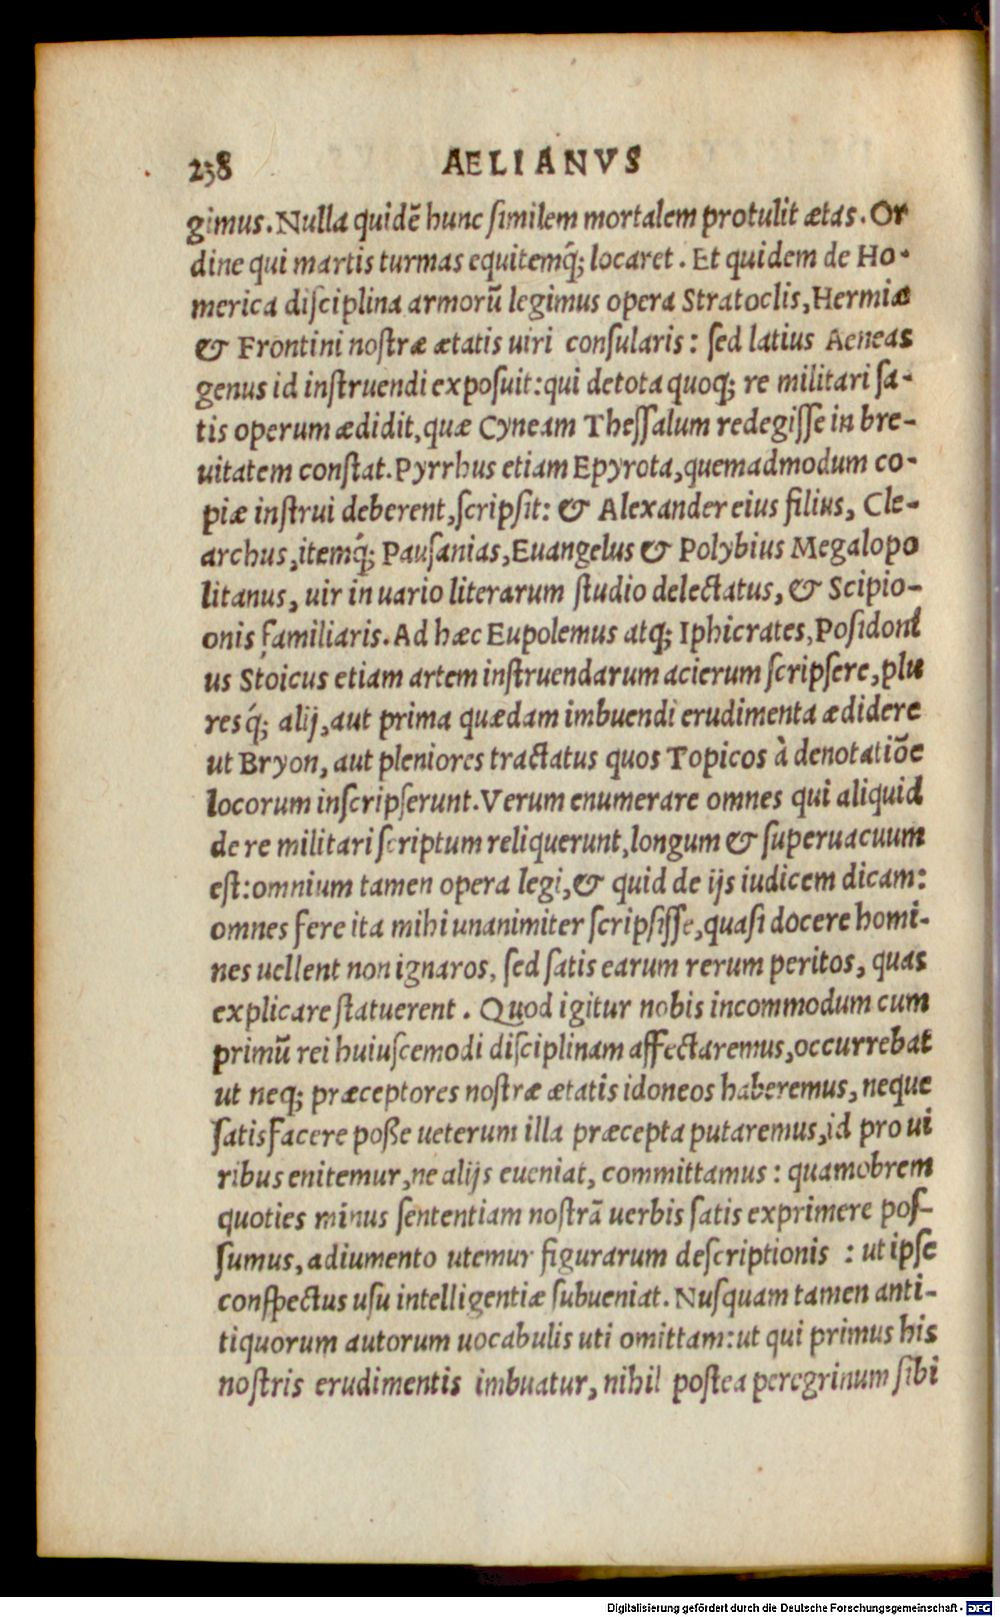 238 AELIANVS
gimus. Nulla quidẽ hunc ſimilem mortalem protulit ætas. Or
dine qui martis turmas equitemq́; locaret. Et quidem de Ho-
merica diſciplina armorũ legimus opera Stratoclis, Hermiæ
& Frontini noſtræ ætatis uiri conſularis: ſed latius Aeneas
genus id inſtruendi expoſuit: qui de tota quoq; re militari ſa-
tis operum ædidit, quæ Cyneam Theſſalum redegiſſe in bre-
uitatem conſtat. Pyrrhus etiam Epyrota, quemadmodum co-
piæ inſtrui deberent, ſcripſit: & Alexander eius filius, Cle-
archus, itemq́; Pauſanias, Euangelus & Polybius Megalopo
litanus, uir in uario literarum ſtudio delectatus, & Scipio-
onis familiaris. Ad hæc Eupolemus atq; Iphicrates, Poſidoni
us Stoicus etiam artem inſtruendarum acierum ſcripſere, plu
res q́; alij, aut prima quædam imbuendi erudimenta ædidere
ut Bryon, aut pleniores tractatus quos Topicos à denotatiõe
locorum inſcripſerunt. Verum enumerare omnes qui aliquid
de re militari ſcriptum reliquerunt, longum & ſuperuacuum
eſt: omnium tamen opera legi, & quid de ijs iudicem dicam:
omnes fere ita mihi unanimiter ſcripſiſſe, quaſi docere homi-
nes uellent non ignaros, ſed ſatis earum rerum peritos, quas
explicare ſtatuerent. Quod igitur nobis incommodum cum
primũ rei huiuſcemodi diſciplinam affectaremus, occurrebat
ut neq; præceptores noſtræ ætatis idoneos haberemus, neque
ſatisfacere poße ueterum illa præcepta putaremus, id pro ui
ribus enitemur, ne alijs eueniat, committamus: quamobrem
quoties minus ſententiam noſtrã uerbis ſatis exprimere poſ-
ſumus, adiumento utemur figurarum deſcriptionis : ut ipſe
conſpectus uſu intelligentiæ ſubueniat. Nuſquam tamen anti-
tiquorum autorum uocabulis uti omittam: ut qui primus his
noſtris erudimentis imbuatur, nihil poſtea peregrinum ſibi
Digitalisierung gefördert durch die Deutsche Forschungsgemeinschaft - DFG